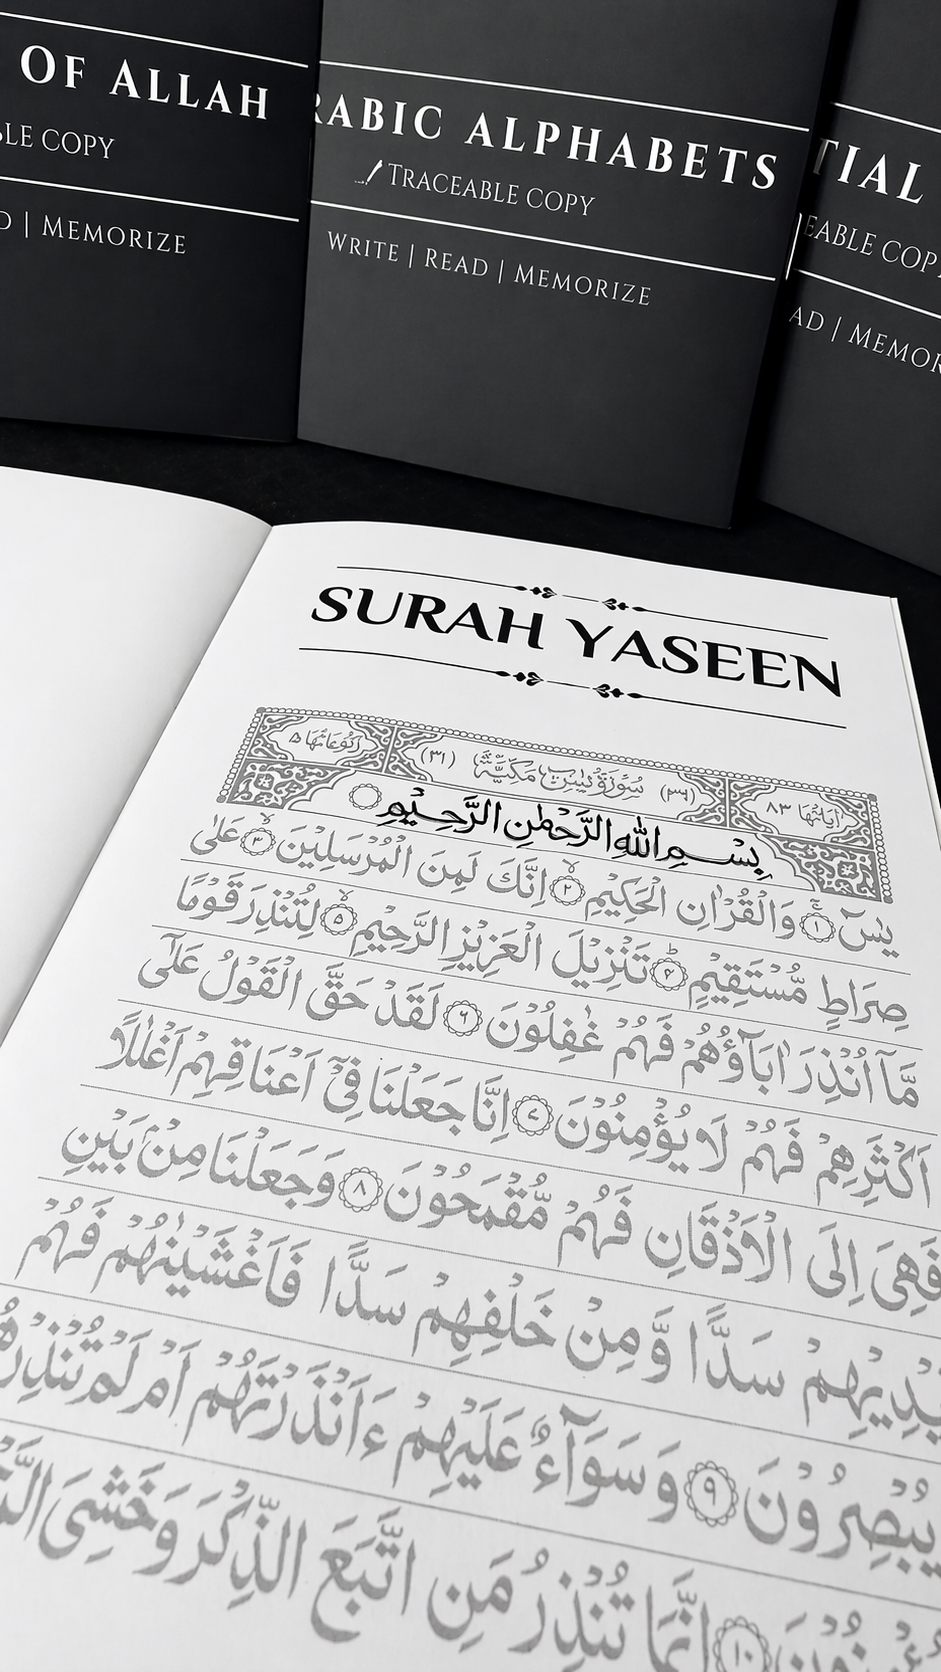 OF ALLAH
LE COPY
D | MEMORIZE
RABIC ALPHABETS
TRACEABLE COPY
WRITE | READ | MEMORIZE
TIAL
EABLE COP
AD | MEMOR
SURAH YASEEN
اٰيَاتُهَا ٨٣ (٣٦) سُوْرَةُ يٰسٓ مَكِّيَّةٌ (٤١) رُكُوْعَاتُهَا ٥
بِسْمِ اللّٰهِ الرَّحْمٰنِ الرَّحِيْمِ
يٰسٓ ۚ ﴿١﴾ وَالْقُرْاٰنِ الْحَكِيْمِ ۙ ﴿٢﴾ اِنَّكَ لَمِنَ الْمُرْسَلِيْنَ ۙ ﴿٣﴾ عَلٰى
صِرَاطٍ مُّسْتَقِيْمٍ ؕ ﴿٤﴾ تَنْزِيْلَ الْعَزِيْزِ الرَّحِيْمِ ۙ ﴿٥﴾ لِتُنْذِرَ قَوْمًا
مَّاۤ اُنْذِرَ اٰبَآؤُهُمْ فَهُمْ غٰفِلُوْنَ ﴿٦﴾ لَقَدْ حَقَّ الْقَوْلُ عَلٰۤى
اَكْثَرِهِمْ فَهُمْ لَا يُؤْمِنُوْنَ ﴿٧﴾ اِنَّا جَعَلْنَا فِيْۤ اَعْنَاقِهِمْ اَغْلٰلًا
فَهِيَ اِلَى الْاَذْقَانِ فَهُمْ مُّقْمَحُوْنَ ﴿٨﴾ وَجَعَلْنَا مِنْۢ بَيْنِ
يْدِيْهِمْ سَدًّا وَّمِنْ خَلْفِهِمْ سَدًّا فَاَغْشَيْنٰهُمْ فَهُمْ
يُبْصِرُوْنَ ﴿٩﴾ وَسَوَآءٌ عَلَيْهِمْ ءَاَنْذَرْتَهُمْ اَمْ لَمْ تُنْذِرْهُ
﴿١٠﴾ اِنَّمَا تُنْذِرُ مَنِ اتَّبَعَ الذِّكْرَ وَخَشِيَ